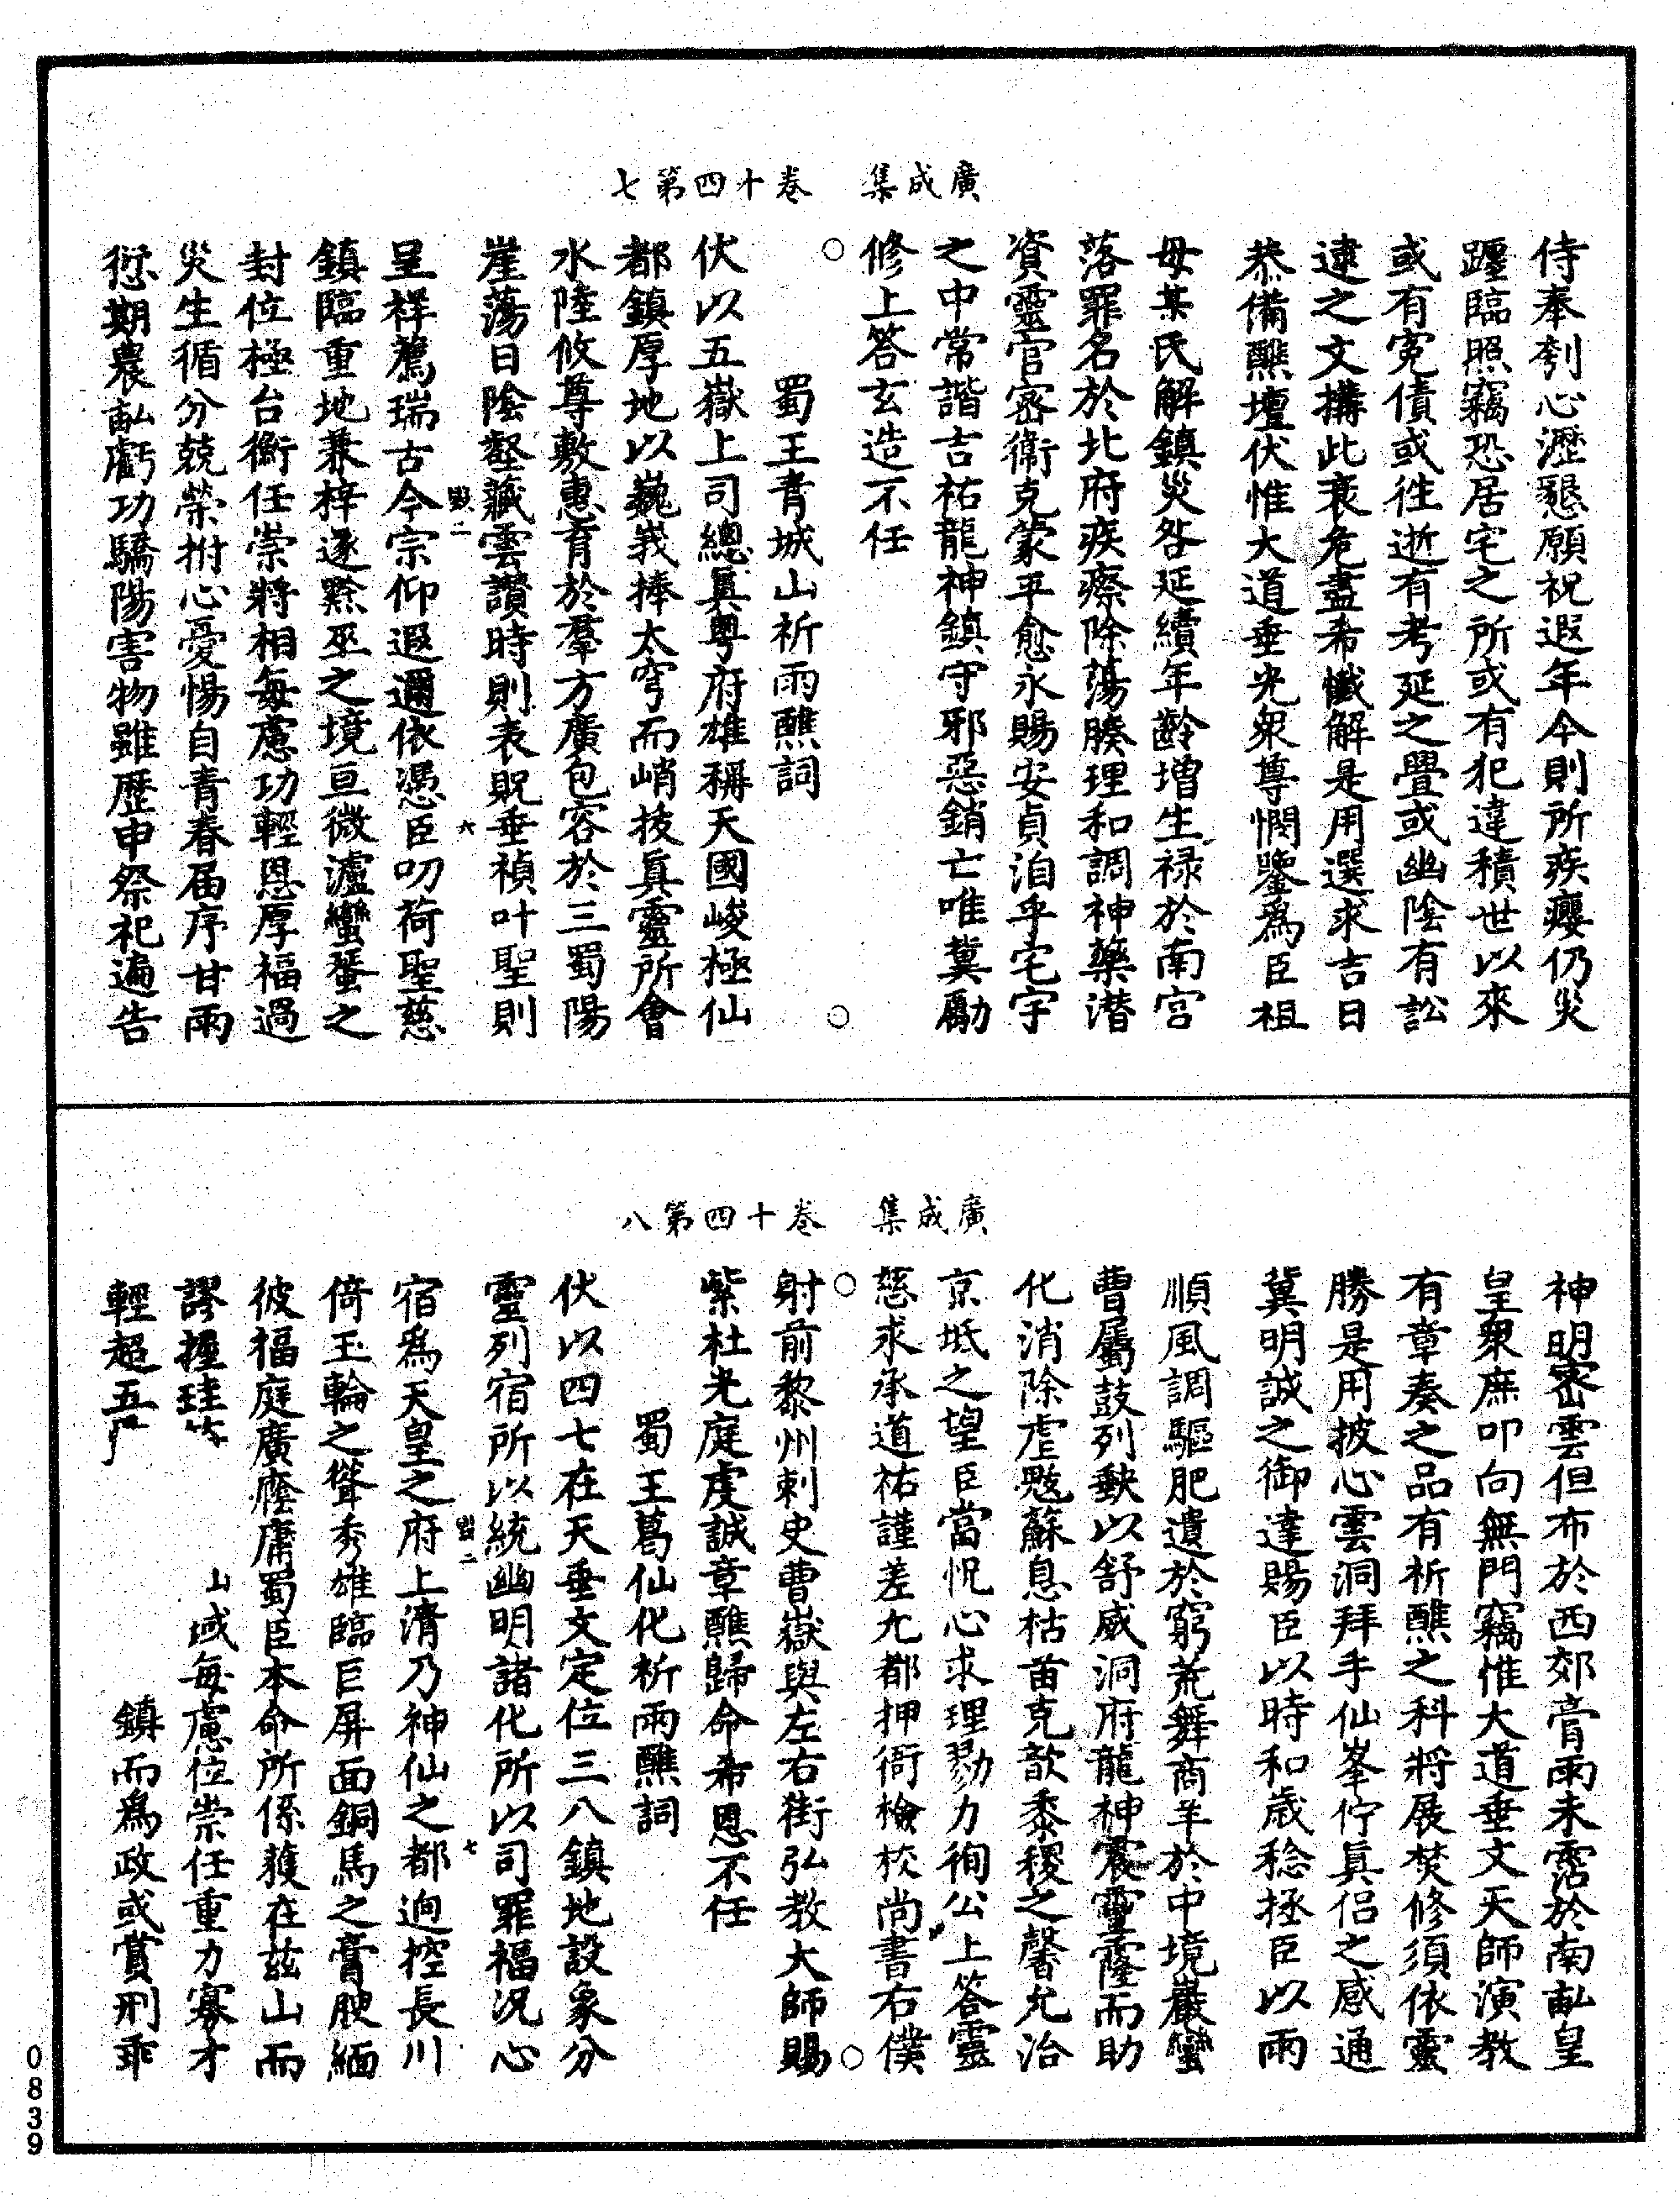 廣成集　卷十四第七
侍奉刳心瀝懇願祝遐年今則所疾癭仍災
躔臨照竊恐居宅之所或有犯違積世以來
或有冤債或徃逝有考延之舋或幽陰有訟
逮之文搆此衰危盡希懺解是用選求吉日
恭備醮壇伏惟大道垂光衆尊憫鑒爲臣祖
母某氏解鎮災咎延續年齡增生禄於南宮
落罪名於北府疾瘵除蕩腠理和調神藥潛
資靈官密衛克蒙平愈永賜安貞洎乎宅宇
之中常諧吉祐龍神鎮守邪惡銷亡唯冀勵
修上答玄造不任
○
蜀王青城山祈雨醮詞
○
伏以五嶽上司總眞粤府雄稱天國峻極仙
都鎮厚地以巍峩捧太穹而峭拔眞靈所會
水陸攸尊敷惠育於羣方廣包容於三蜀陽
崖蕩日陰壑藏雲讚時則表貺垂禎叶聖則
二　六
呈祥薦瑞古今宗仰遐邇依憑臣叨荷聖慈
鎮臨重地兼梓逐黔巫之境亘微瀘蠻蜑之
封位極台衡任崇將相每慮功輕恩厚福過
災生循分兢榮拊心憂惕自青春届序甘雨
愆期農畝虧功驕陽害物雖歷申祭祀遍告
廣成集　卷十四第八
神明密雲但布於西郊膏雨未霑於南畝皇
皇衆庶叩向無門竊惟大道垂文天師演教
有章奏之品有祈醮之科將展焚修須依靈
勝是用披心雲洞拜手仙峯佇眞侣之感通
冀明誠之御達賜臣以時和歲稔拯臣以雨
順風調驅肥遺於窮荒舞商羊於中境巖巒
曹屬鼓列缺以舒威洞府龍神震靈霳而助
化消除虐魃蘇息枯苗克歆黍稷之馨允治
京坻之望臣當怳心求理勠力徇公上答靈
慈求承道祐謹差尢都押衙檢校尚書右僕
○
射前黎州刺史曹嶽與左右街弘教大師賜
○
紫杜光庭虔誠章醮歸命希恩不任
蜀王葛仙化祈雨醮詞
伏以四七在天垂文定位三八鎮地設象分
靈列宿所以統幽明諸化所以司罪福况心
二　七
宿爲天皇之府上清乃神仙之都迥控長川
倚玉輪之聳秀雄臨巨屏面銅馬之膏腴緬
彼福庭廣廕庸蜀臣本命所係蕤在兹山而
謬握珪　山域每慮位崇任重力寡才
輕超五　鎮而爲政或賞刑乖
0839